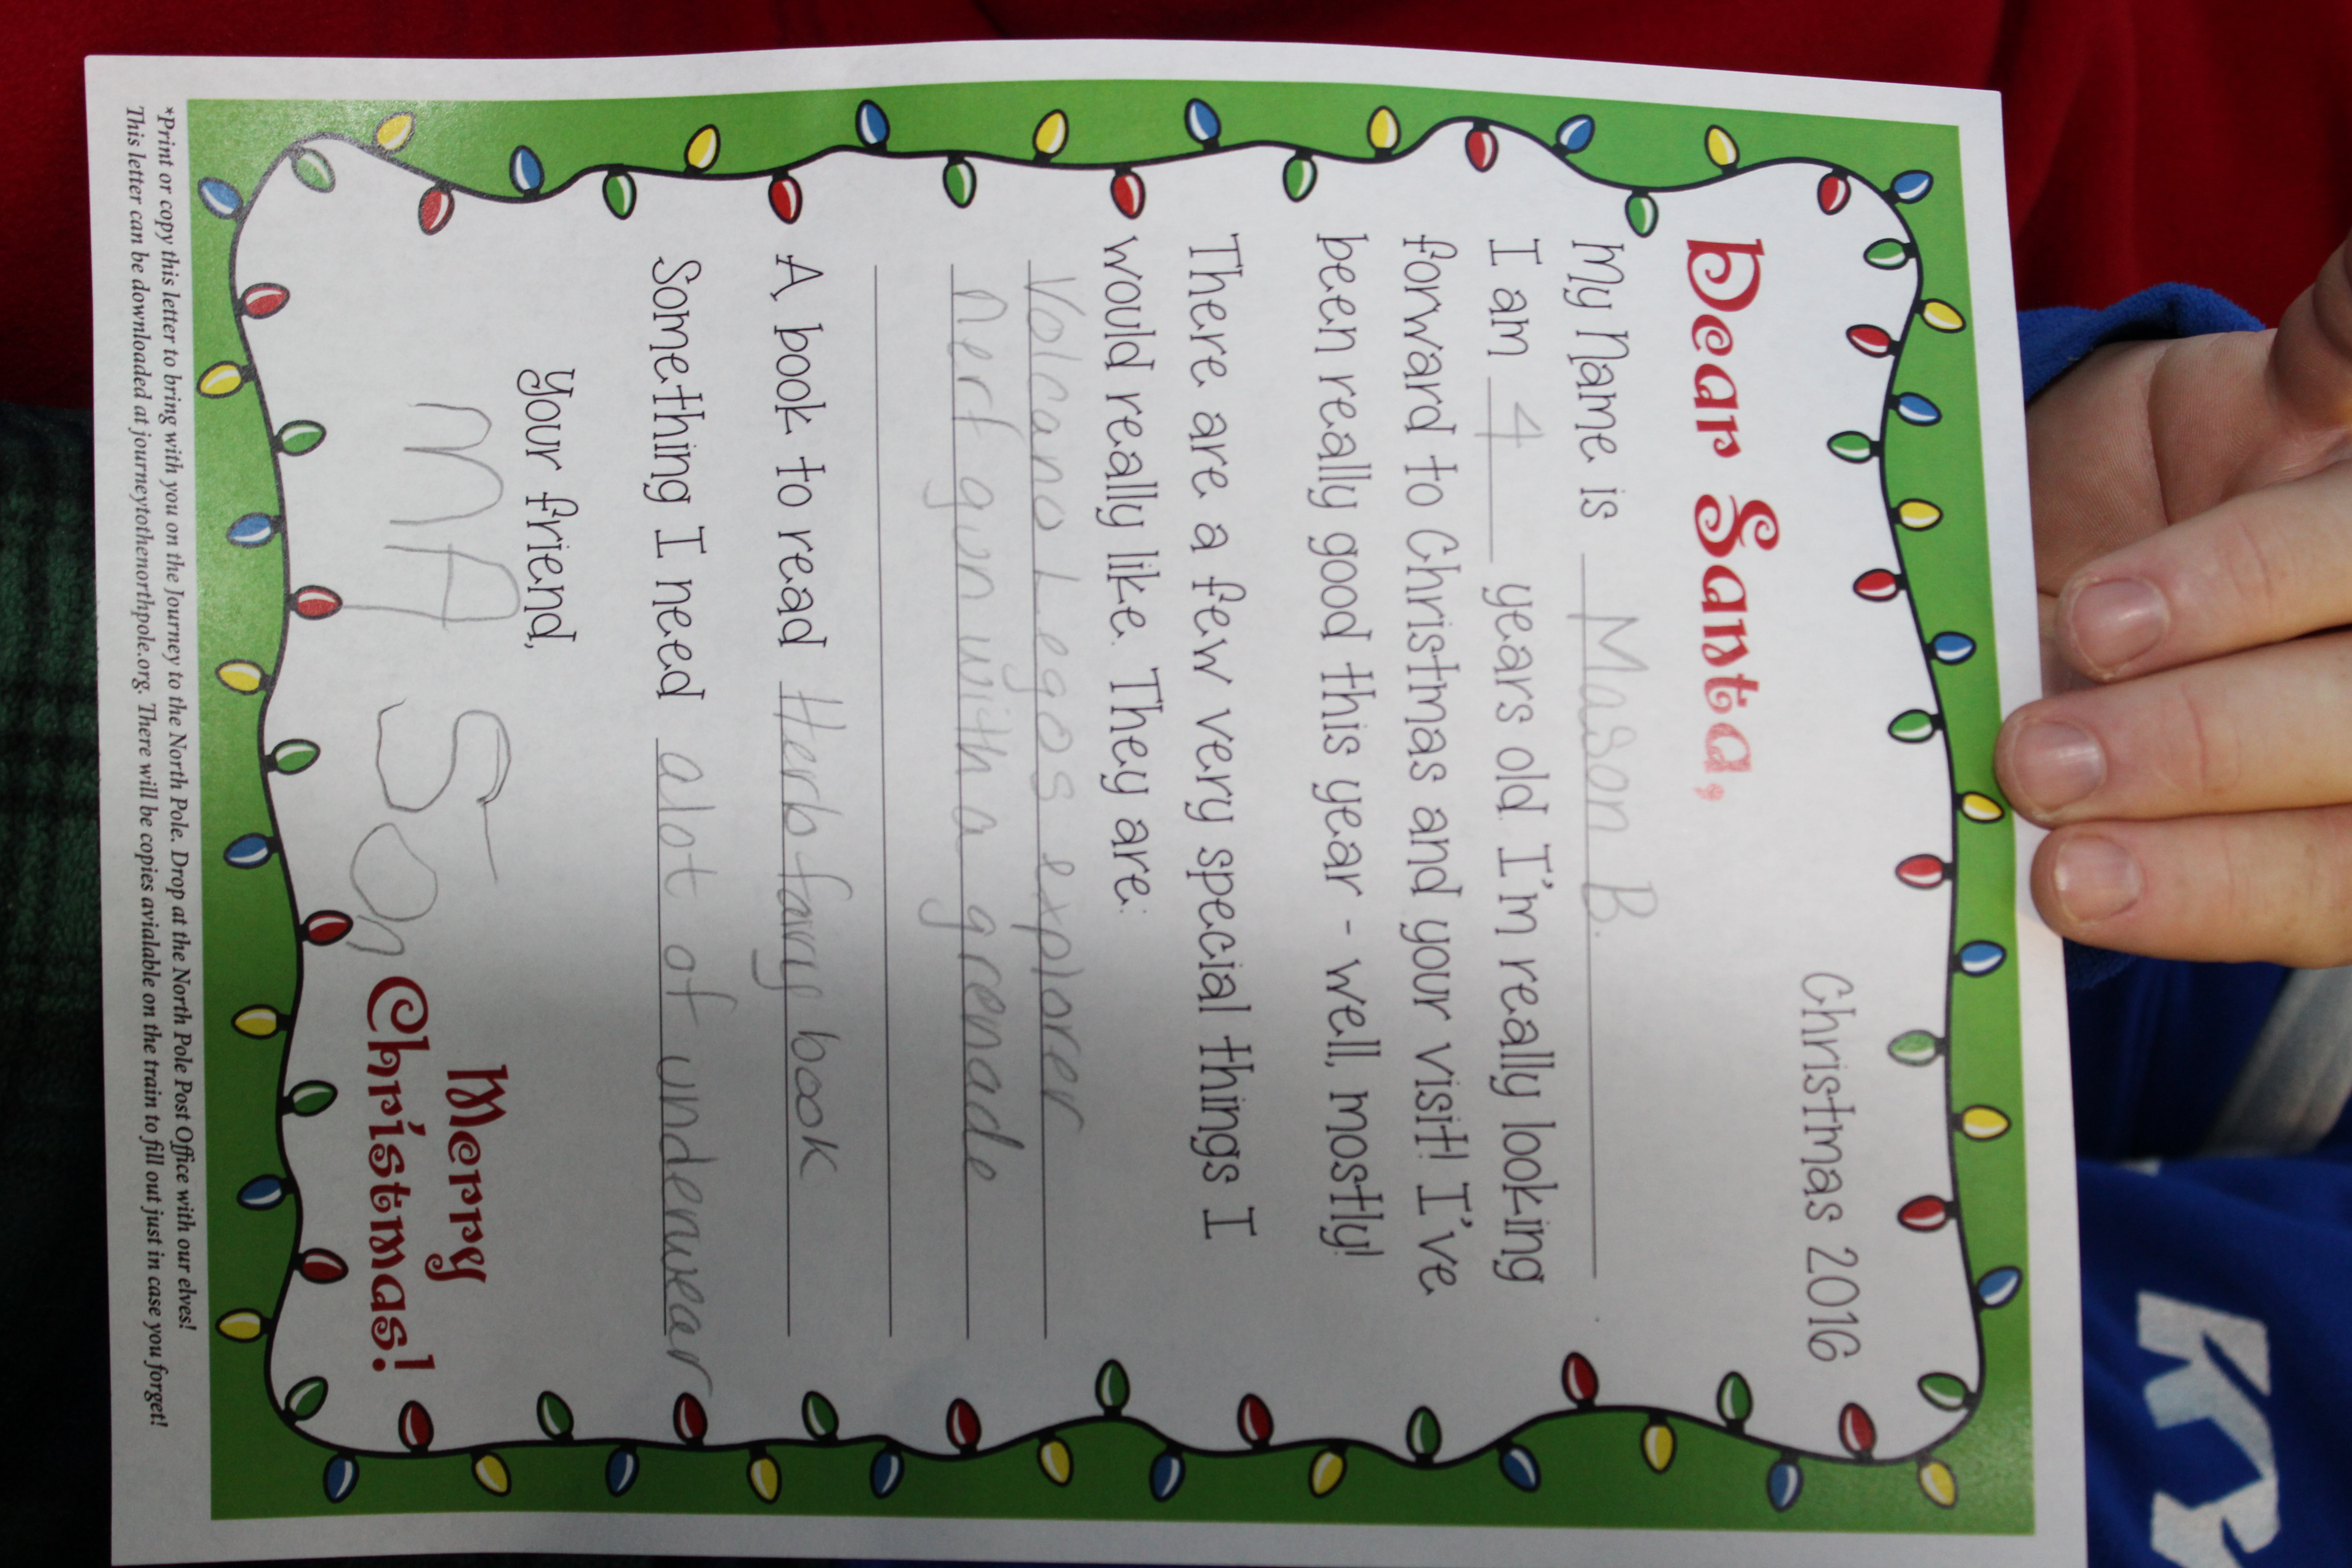 Christmas 2016
Dear Santa,
My name is Mason B.
I am 4 years old. I'm really looking
forward to Christmas and your visit! I've
been really good this year - well, mostly!
There are a few very special things I
would really like. They are:
Volcano Legos explorer
nerf gun with a grenade
A book to read Herb fairy book
Something I need alot of underwear
your friend,
MASon
Merry
Christmas!
*Print or copy this letter to bring with you on the Journey to the North Pole. Drop at the North Pole Post Office with our elves!
This letter can be downloaded at journeytothenorthpole.org. There will be copies avialable on the train to fill out just in case you forget!